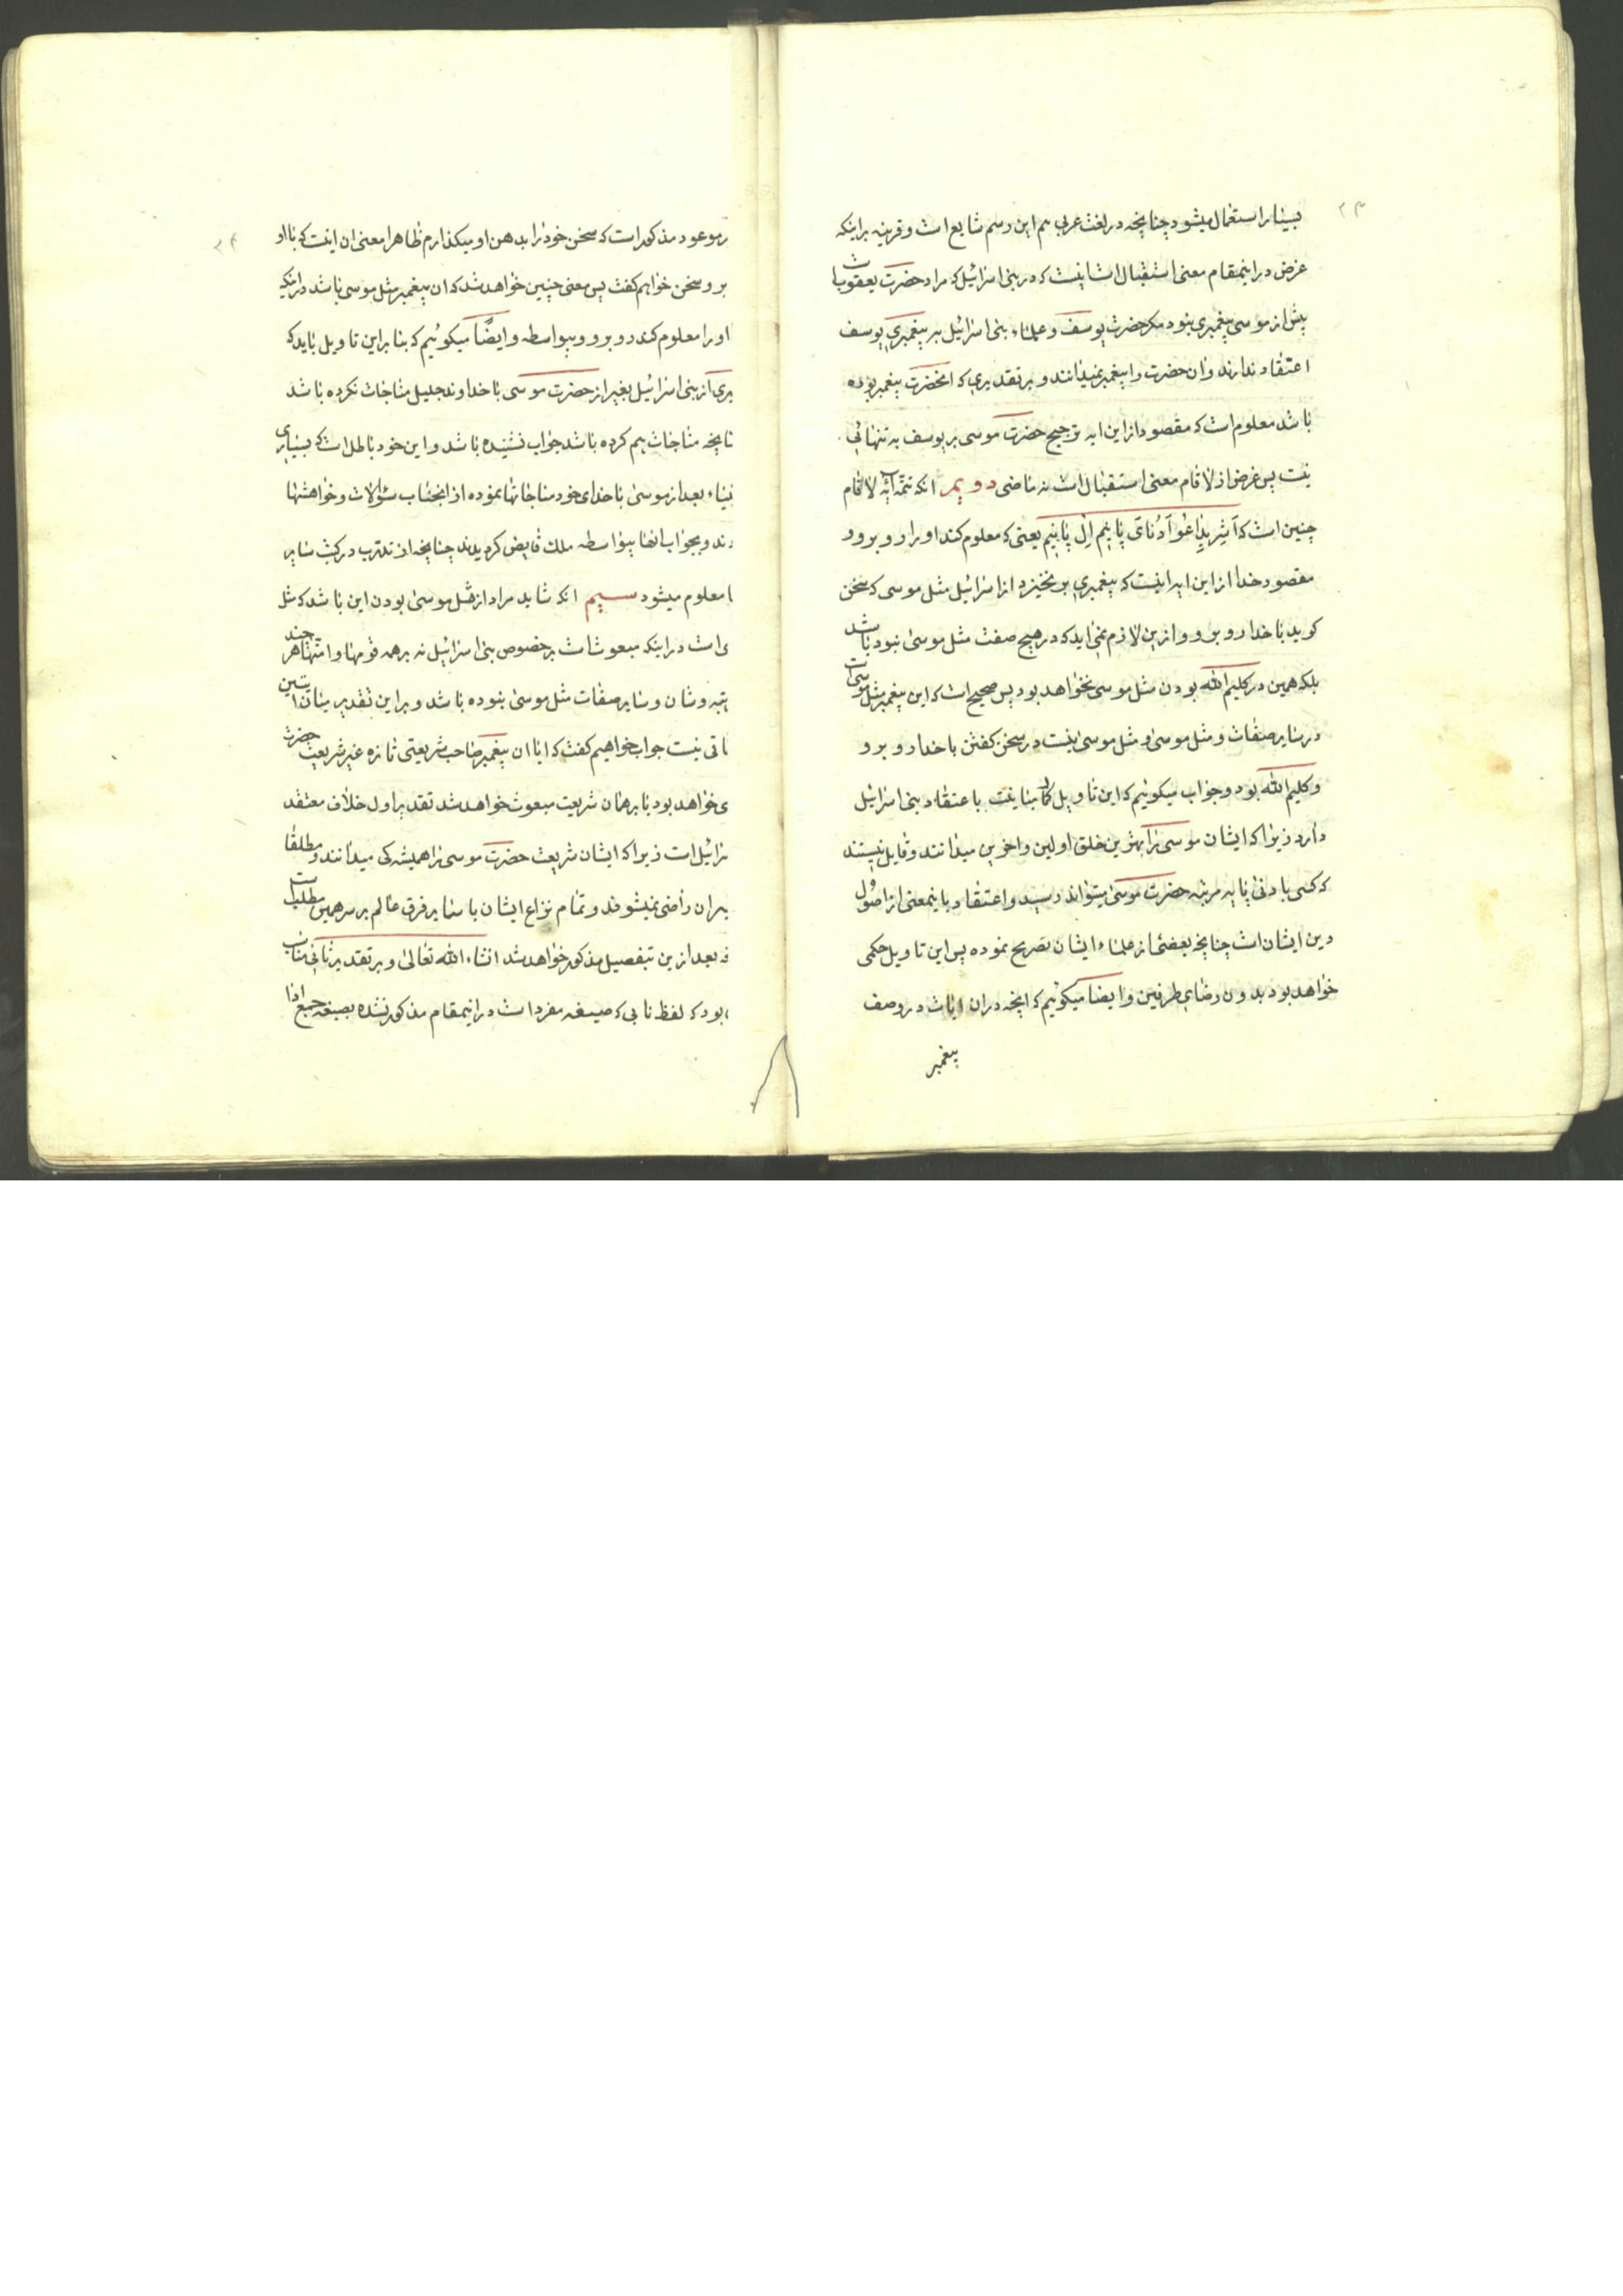 ۲۳
بسیار استعمال میشود چنانچه در لغت عربی هم این رسم شایع است و قرینه بر اینکه
غرض در اینمقام معنی استقبال است اینست که در بنی اسرائیل که مراد حضرت یعقوب است
پیش از موسی پیغمبری نبود مکر حضرت یوسف و علماء بنی اسرائیل بر پیغمبری یوسف
اعتقاد ندارند و ان حضرت را پیغمبر نمیدانند و بر تقدیری که انحضرت پیغمبر بوده
باشد معلوم است که مقصود از این ایه ترجیح حضرت موسی بر یوسف به تنهائی
نیست پس غرض از لاقام معنی استقبال است نه ماضی دویم انکه تتمه ایه لاقام
چنین است که اَشِر یِذاعُوا اَدُنای پانیم اِل پانیم یعنی که معلوم کند او را رو برو و
مقصود خدا از این ایه اینست که پیغمبری بر نخیزد از اسرائیل مثل موسی که سخن
کوید با خدا رو برو و از این لازم نمی اید که در هیچ صفت مثل موسی نبوده باشد
بلکه همین در کلیم الله بودن مثل موسی نخواهد بود پس صحیح است که این پیغمبر مثل موسی است
در سایر صفات و مثل موسی و مثل موسی نیست در سخن کفتن با خدا رو برو
و کلیم الله بود و جواب میکوئیم که این تاویل کمال منافیت با اعتقاد بنی اسرائیل
دارد زیرا که ایشان موسی را بهترین خلق اولین و اخرین میدانند و قایل نیستند
که کسی بادنی پایه مرتبه حضرت موسی میتواند رسید و اعتقاد باینمعنی از اصول
دین ایشان است چنانچه بعضی از علماء ایشان تصریح نموده پس این تاویل حکمی
خواهد بود بدون رضای طرفین و ایضا میکوئیم که انچه در ان ایات در وصف
پیغمبر
۲۴
ر موعود مذکور است که سخن خود را بدهن او میکذارم ظاهرا معنی ان اینست که با او
برو سخن خواهم کفت پس معنی چنین خواهد شد که ان پیغمبر مثل موسی باشد در اینکه
او را معلوم کند رو برو و بیواسطه و ایضًا میکوئیم که بنا بر این تاویل باید که
یری از بنی اسرائیل بغیر از حضرت موسی با خداوند جلیل مناجات نکرده باشد
نانچه مناجات هم کرده باشد جواب نشنیده باشد و این خود باطل است که بسیاری
نبیاء بعد از موسی با خدای خود مناجاتها نموده از انجناب سئوالات و خواهشها
دند و بجواب انها بیواسطه ملک فایض کردیدند چنانچه از تدرب در کتب سایر
ا معلوم میشود سیم انکه شاید مراد از مثل موسی بودن این باشد که مثل
ی است در اینکه مبعوث است بر خصوص بنی اسرائیل نه بر همه قومها و امتها هر چند
تبه و شان و سایر صفات مثل موسی نبوده باشد و بر این تقدیر میان ایتین
فاتی نیست جواب خواهیم کفت که ایا ان پیغمبر صاحب شریعتی تازه غیر شریعت حضرت
ی خواهد بود یا بر همان شریعت مبعوث خواهد شد تقدیر اول خلاف معتقد
سرائیل است زیرا که ایشان شریعت حضرت موسی را همیشه کی میدانند و مطلقا
یر ان راضی نمیشوند و تمام نزاع ایشان با سایر فرق عالم بر سر همین مطلب است
نه بعد از ین بتفصیل مذکور خواهد شد انشاء الله تعالی و بر تقدیر ثانی مناسب
، بود که لفظ نابی که صیغه مفرد است در اینمقام مذکور نشده بصیغه جمع ادا